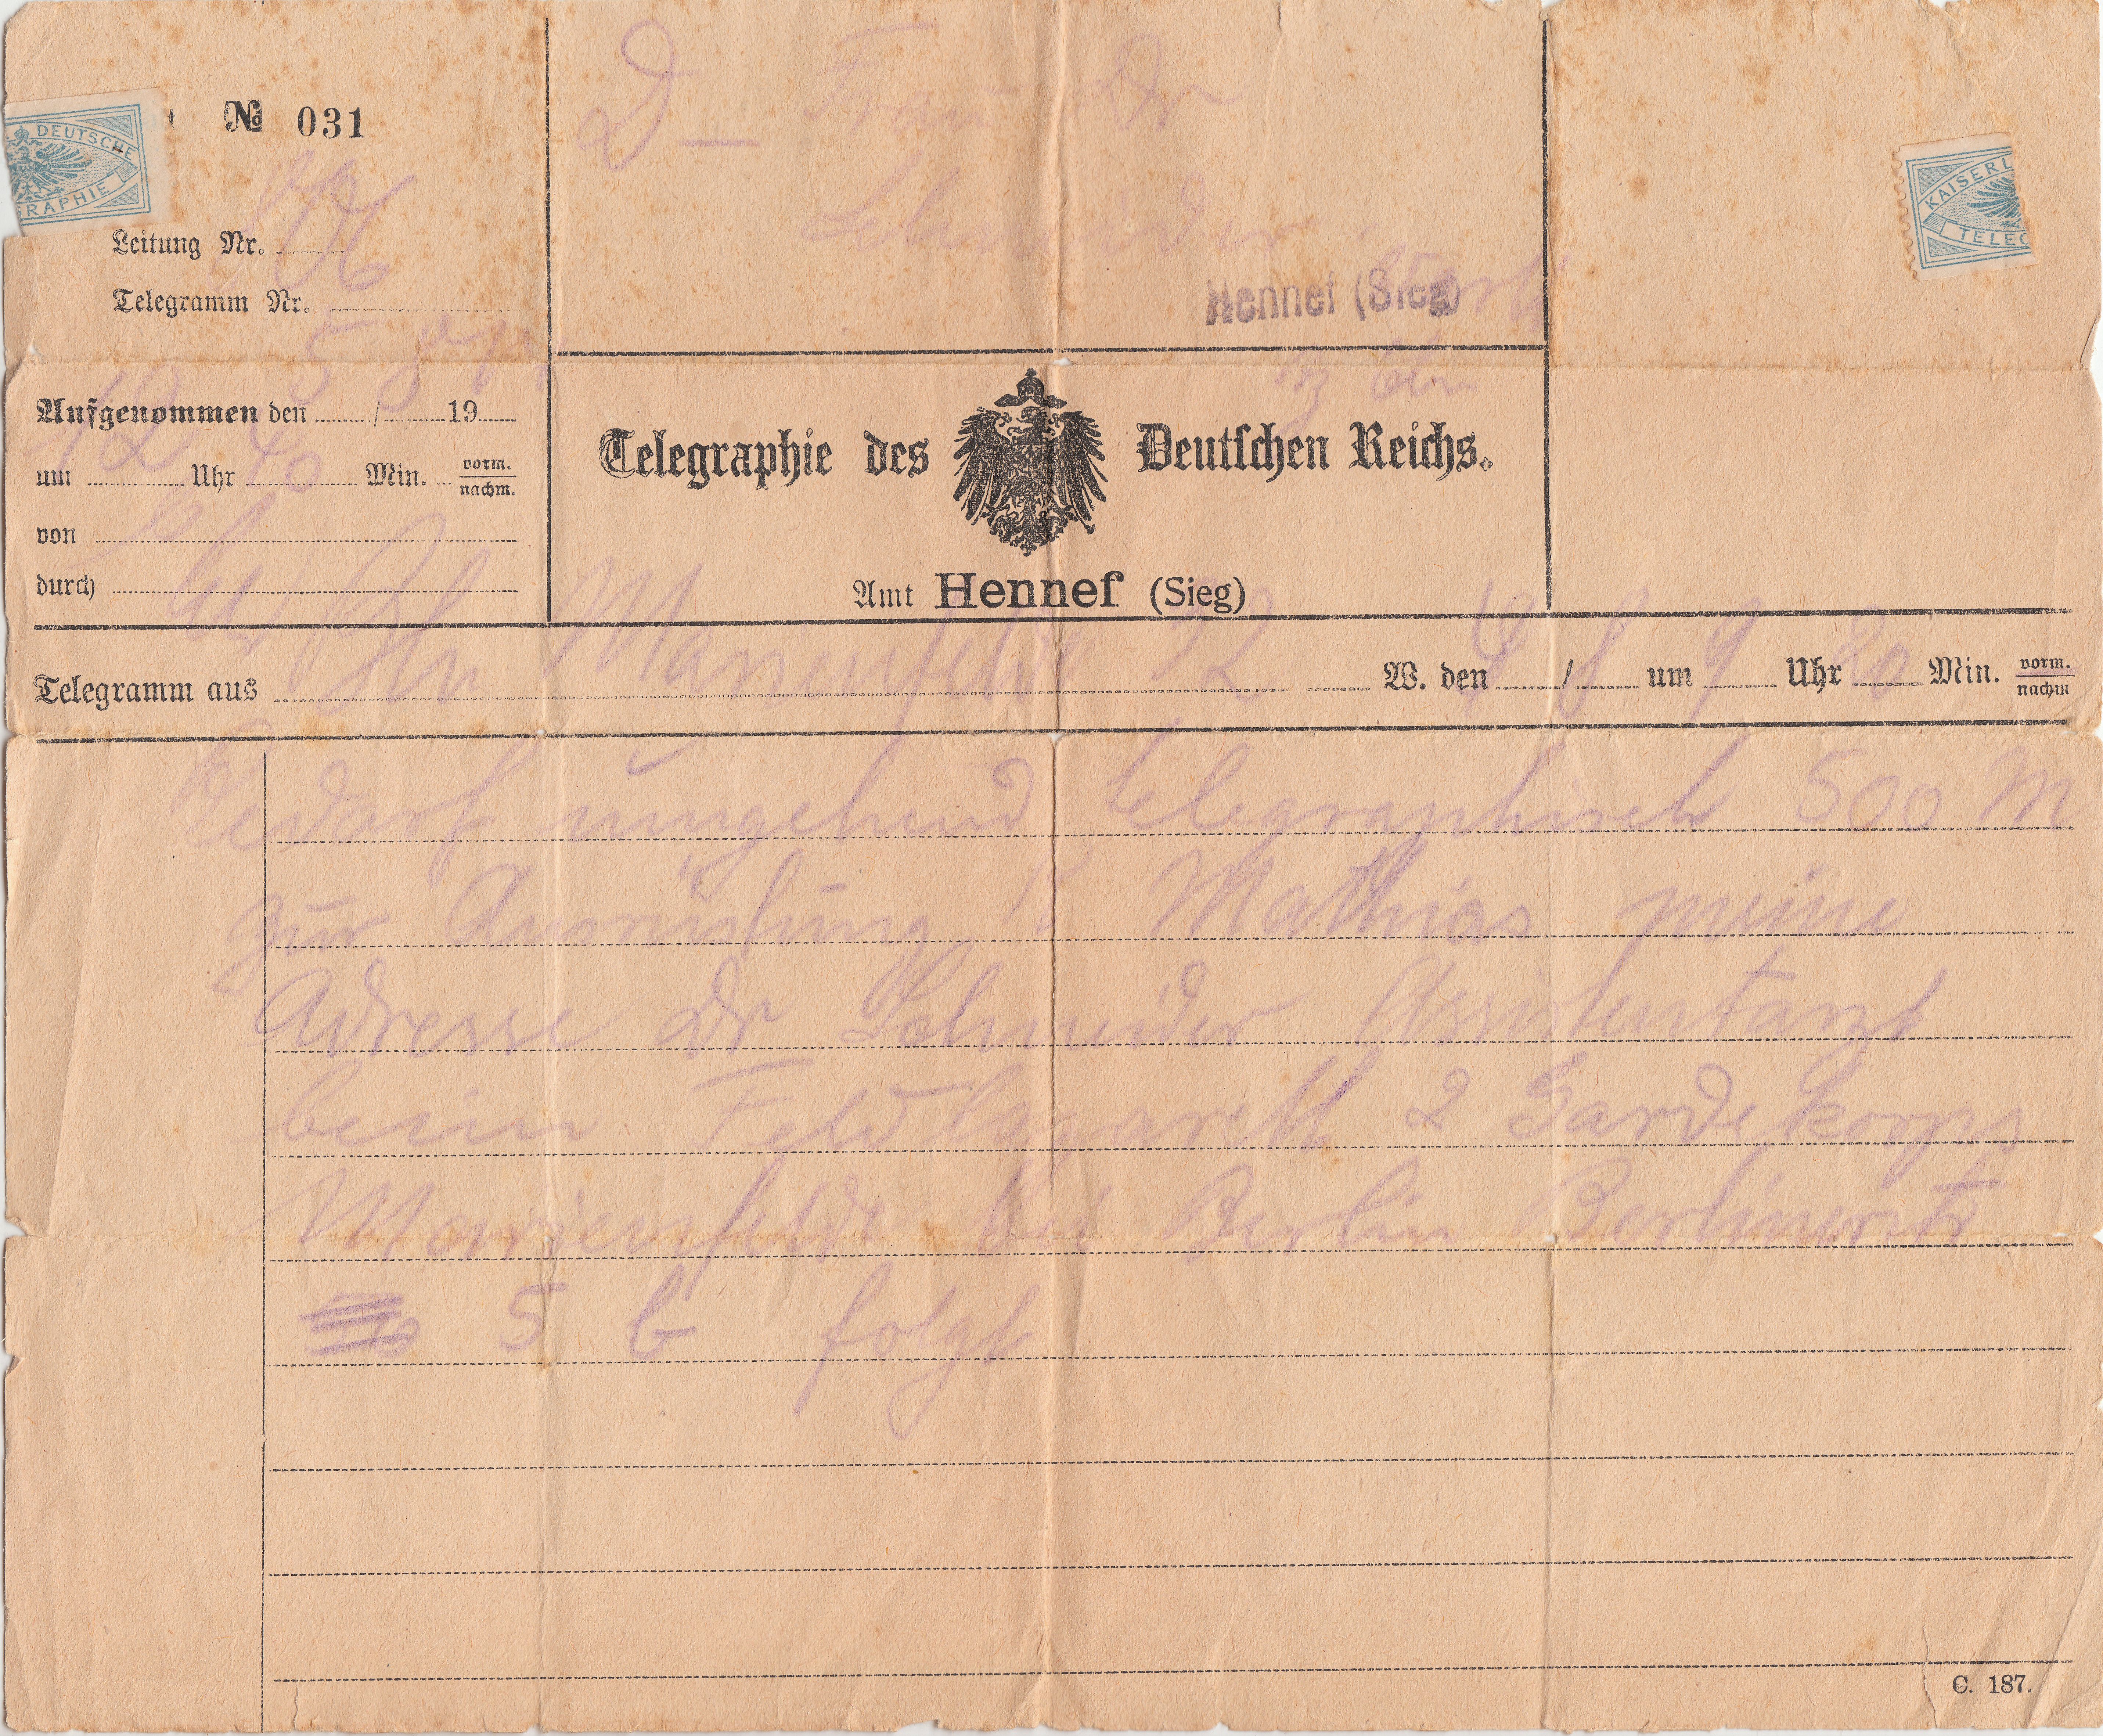 DEUTSCHE
GRAPHIE
№ 031
D — Frau Dr
KAISERL
TELEG
Leitung Nr.
Hennef (Sieg)
Telegramm Nr.
Aufgenommen den 5 / 8 19
um 12 Uhr 40 Min. vorm.
nachm.
Telegraphie des Deutschen Reichs.
von
durch
Amt Hennef (Sieg)
Telegramm aus Marienfelde W. den / 8 um 9 Uhr Min. vorm.
nachm
Bedarf umgehend telegraphisch 500 M
zur Ausrüstung Mathias meine
Adresse Dr Schneider Assistentarzt
beim Feldlazarett 2 Gardekorps
Marienfelde bei Berlin Berlinerstr
5 b folgt
C. 187.